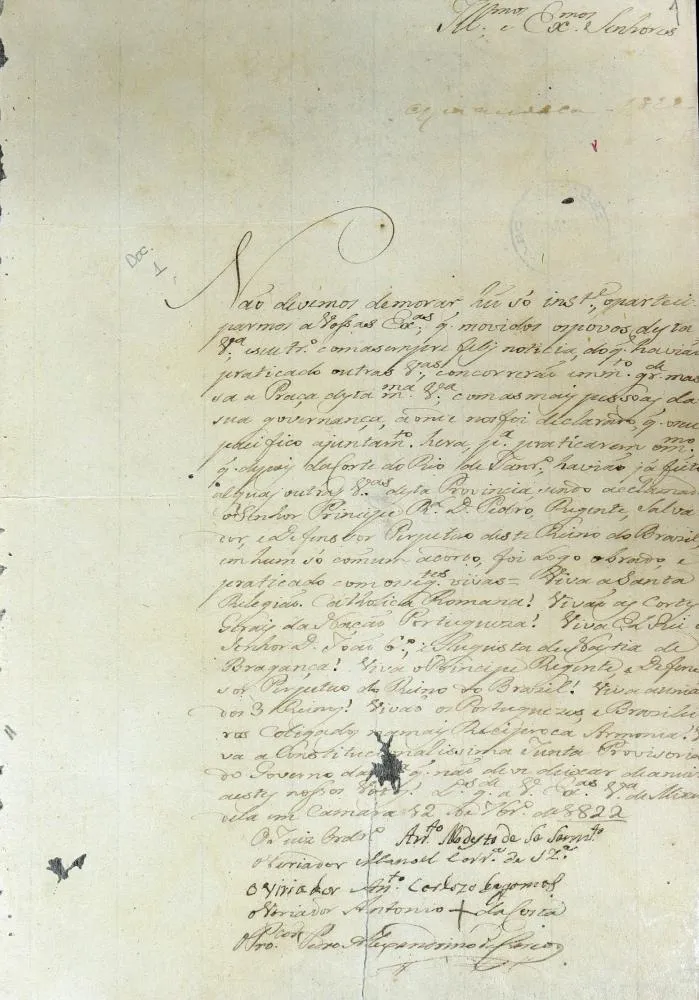 Ill.mos e Ex.mos Senhores
1822
Doc.
1
Não devemos demorar hũ só inst.e, o partici-
parmos a Vossas Ex.as, q. movidos os povos desta
V.a e seu tr.o com a sempre feliz noticia, do q. havião
praticado outras V.as, concorrerão em m.to gr.de mas-
sa a Praça desta m.ma V.a com as mais pessoas da
sua governança, a onde nos foi declarado, q. o seu
pacifico ajuntam.to hera, p.a praticarem o m.mo
q. depois da Corte do Rio de Janr.o havião já feito
alguas outras V.as desta Provincia, sendo acclamado
o Senhor Principe R. D. Pedro, Regente, Salva
dor, e Defensor Perpetuo deste Reino do Brasil,
em hum só comum acordo, foi logo obrado, e
praticado com os seg.tes vivas = Viva a Santa
Religião Catholica Romana! Vivão as Cortes
Gerais da Nação Portugueza! Viva El Rei o
Senhor D. João 6.o, e Augusta Dynastia de
Bragança! Viva o Principe Regente, e Defen-
sor Perpetuo do Reino do Brazil! Viva a união
dos 3 Reinos! Vivão os Portuguezes, e Brazilei-
ros Coligados na mais Reciproca Armonia! Vi-
va a Constitucionalissima Junta Provisoria
do Governo da q. não deve deixar de anuir
a estes nossos Votos! D.s g.de a V. Ex.as V.a de
em Camara 12 de 8br.o de 1822
O Juiz Ordr.o Ant.o Modesto de Sa Sarm.to
O Veriador Manoel Corr.a de Sz.a
O Viriador Ant.o Cardozo
O Veriador Antonio + da Costa
O Pro.cor Pedro Alexandrino